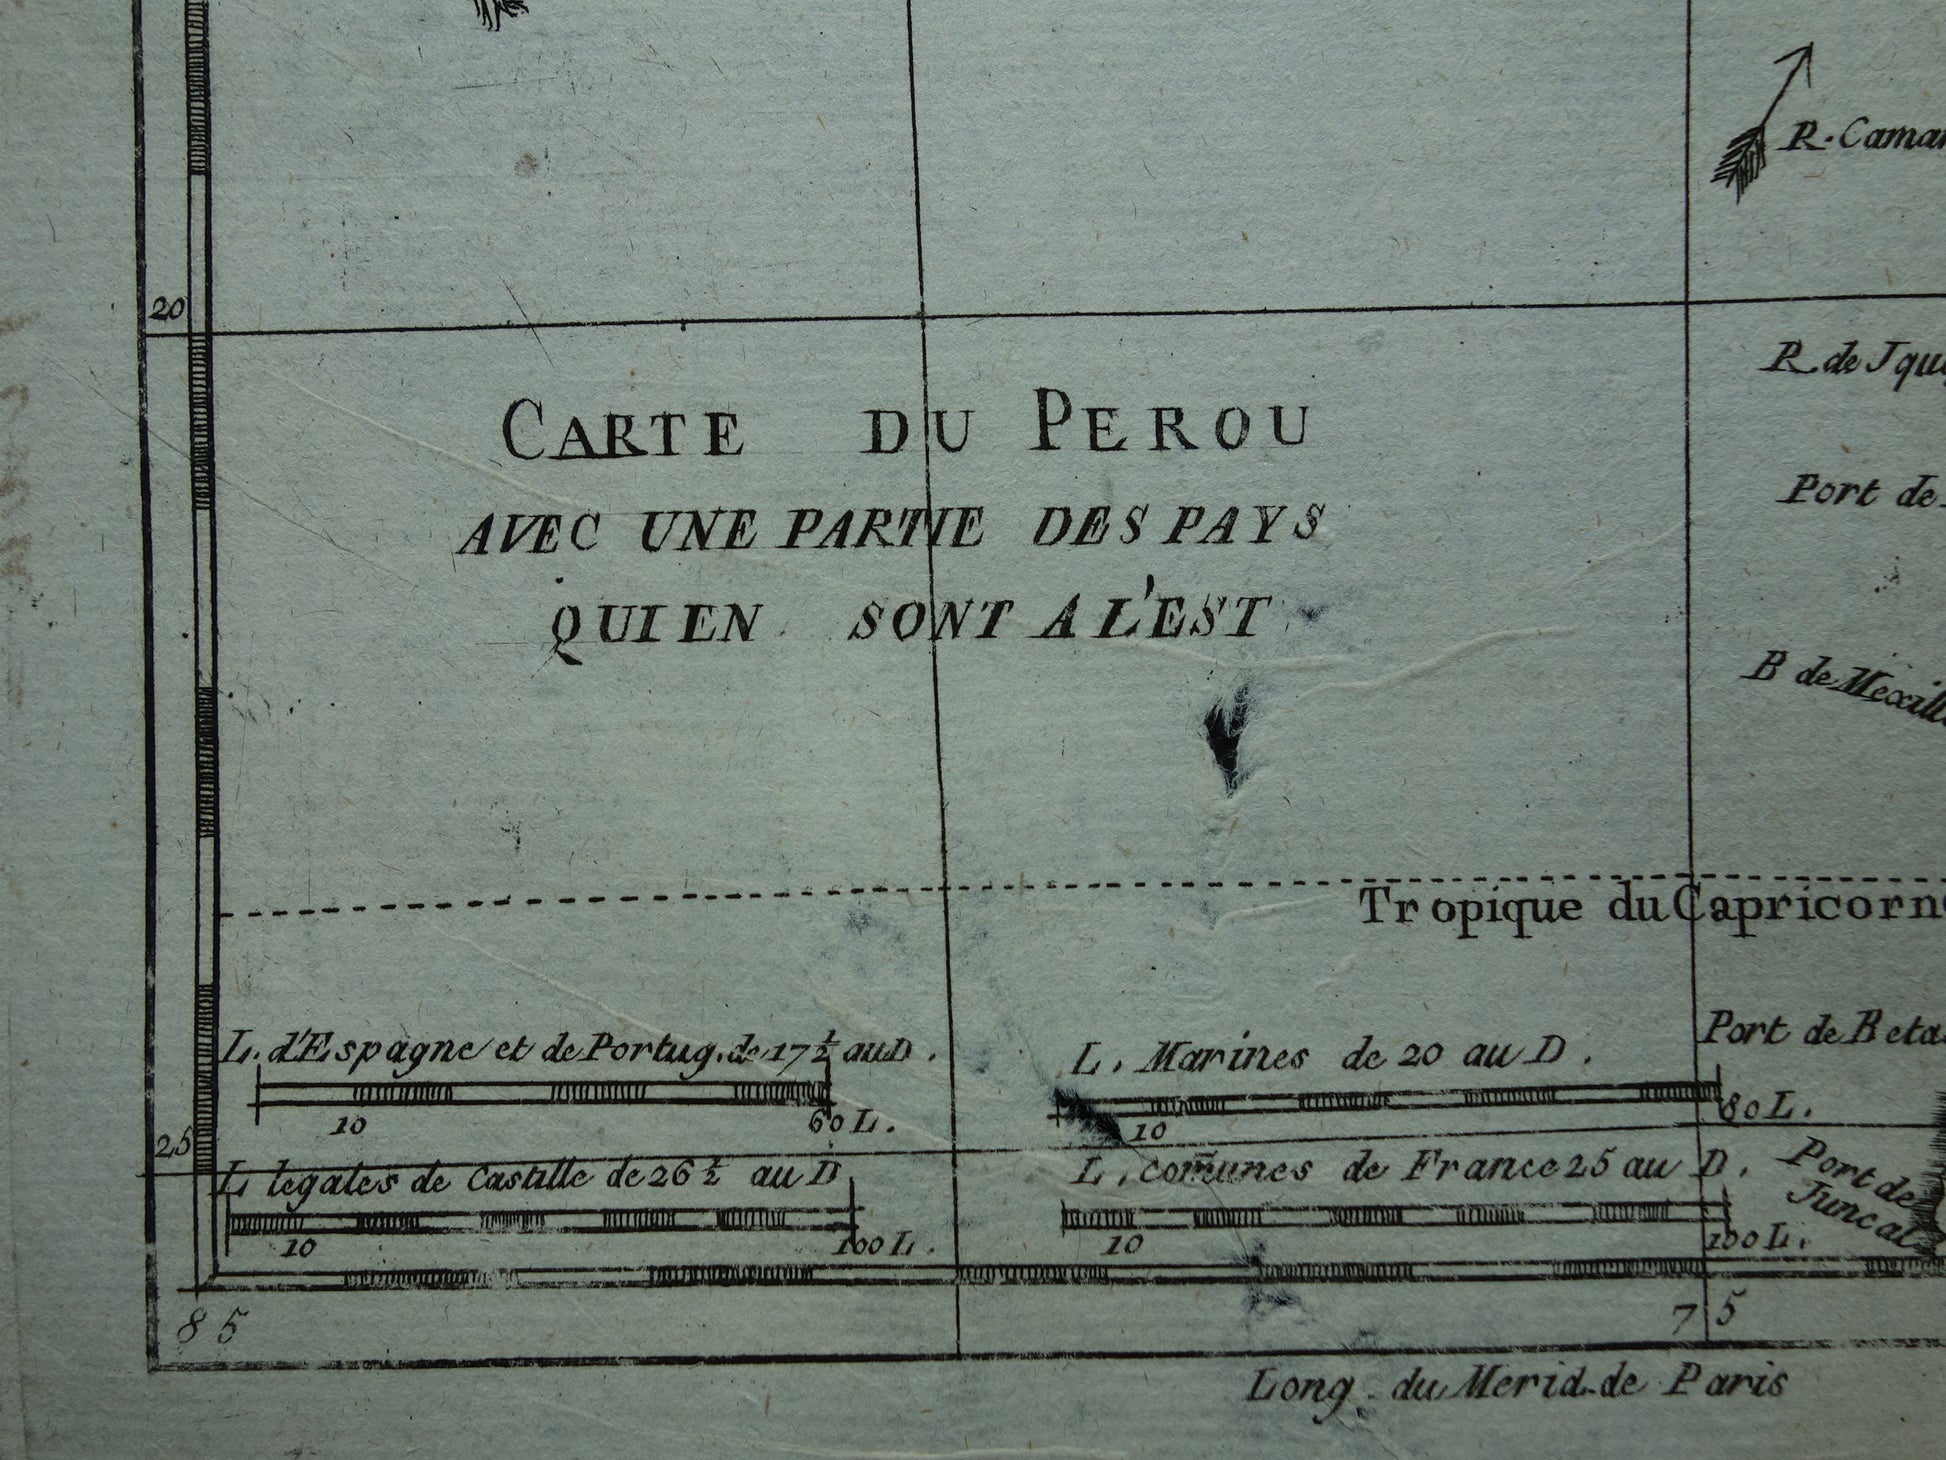 20
CARTE DU PEROU
AVEC UNE PARTIE DES PAYS
QUI EN SONT A L'EST
R. de
Port de
B de
Tropique du Capricorne
Port de
L. d'Espagne et de Portug. de 17 1/2 au D.
10 60 L.
L. Marines de 20 au D.
10 80 L.
25
L legales de Castille de 26 1/2 au D
10 100 L.
L. com̃unes de France 25 au D.
10 100 L.
Port de
Juncal
85
75
Long. du Merid. de Paris